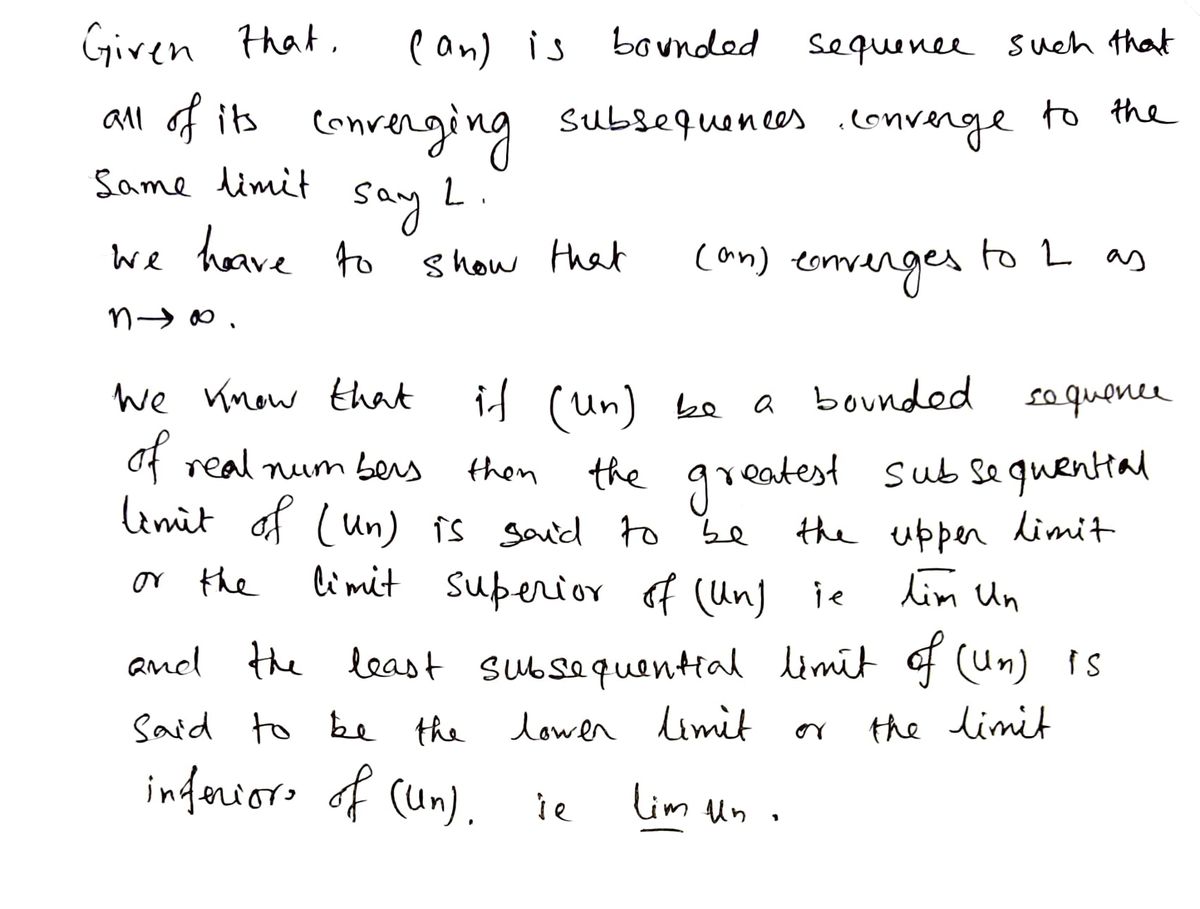 Given that. (an) is bounded sequence such that
all of its converging subsequences .converge to the
Same limit say L.
we have to show that (an) converges to L as
n→∞.
We know that if (Un) be a bounded sequence
of real numbers then the greatest subsequential
limit of (Un) is said to be the upper limit
or the limit superior of (Un) ie l̅i̅m̅ Un
and the least subsequential limit of (Un) is
Said to be the lower limit or the limit
inferior of (Un). ie l̲i̲m̲ Un.